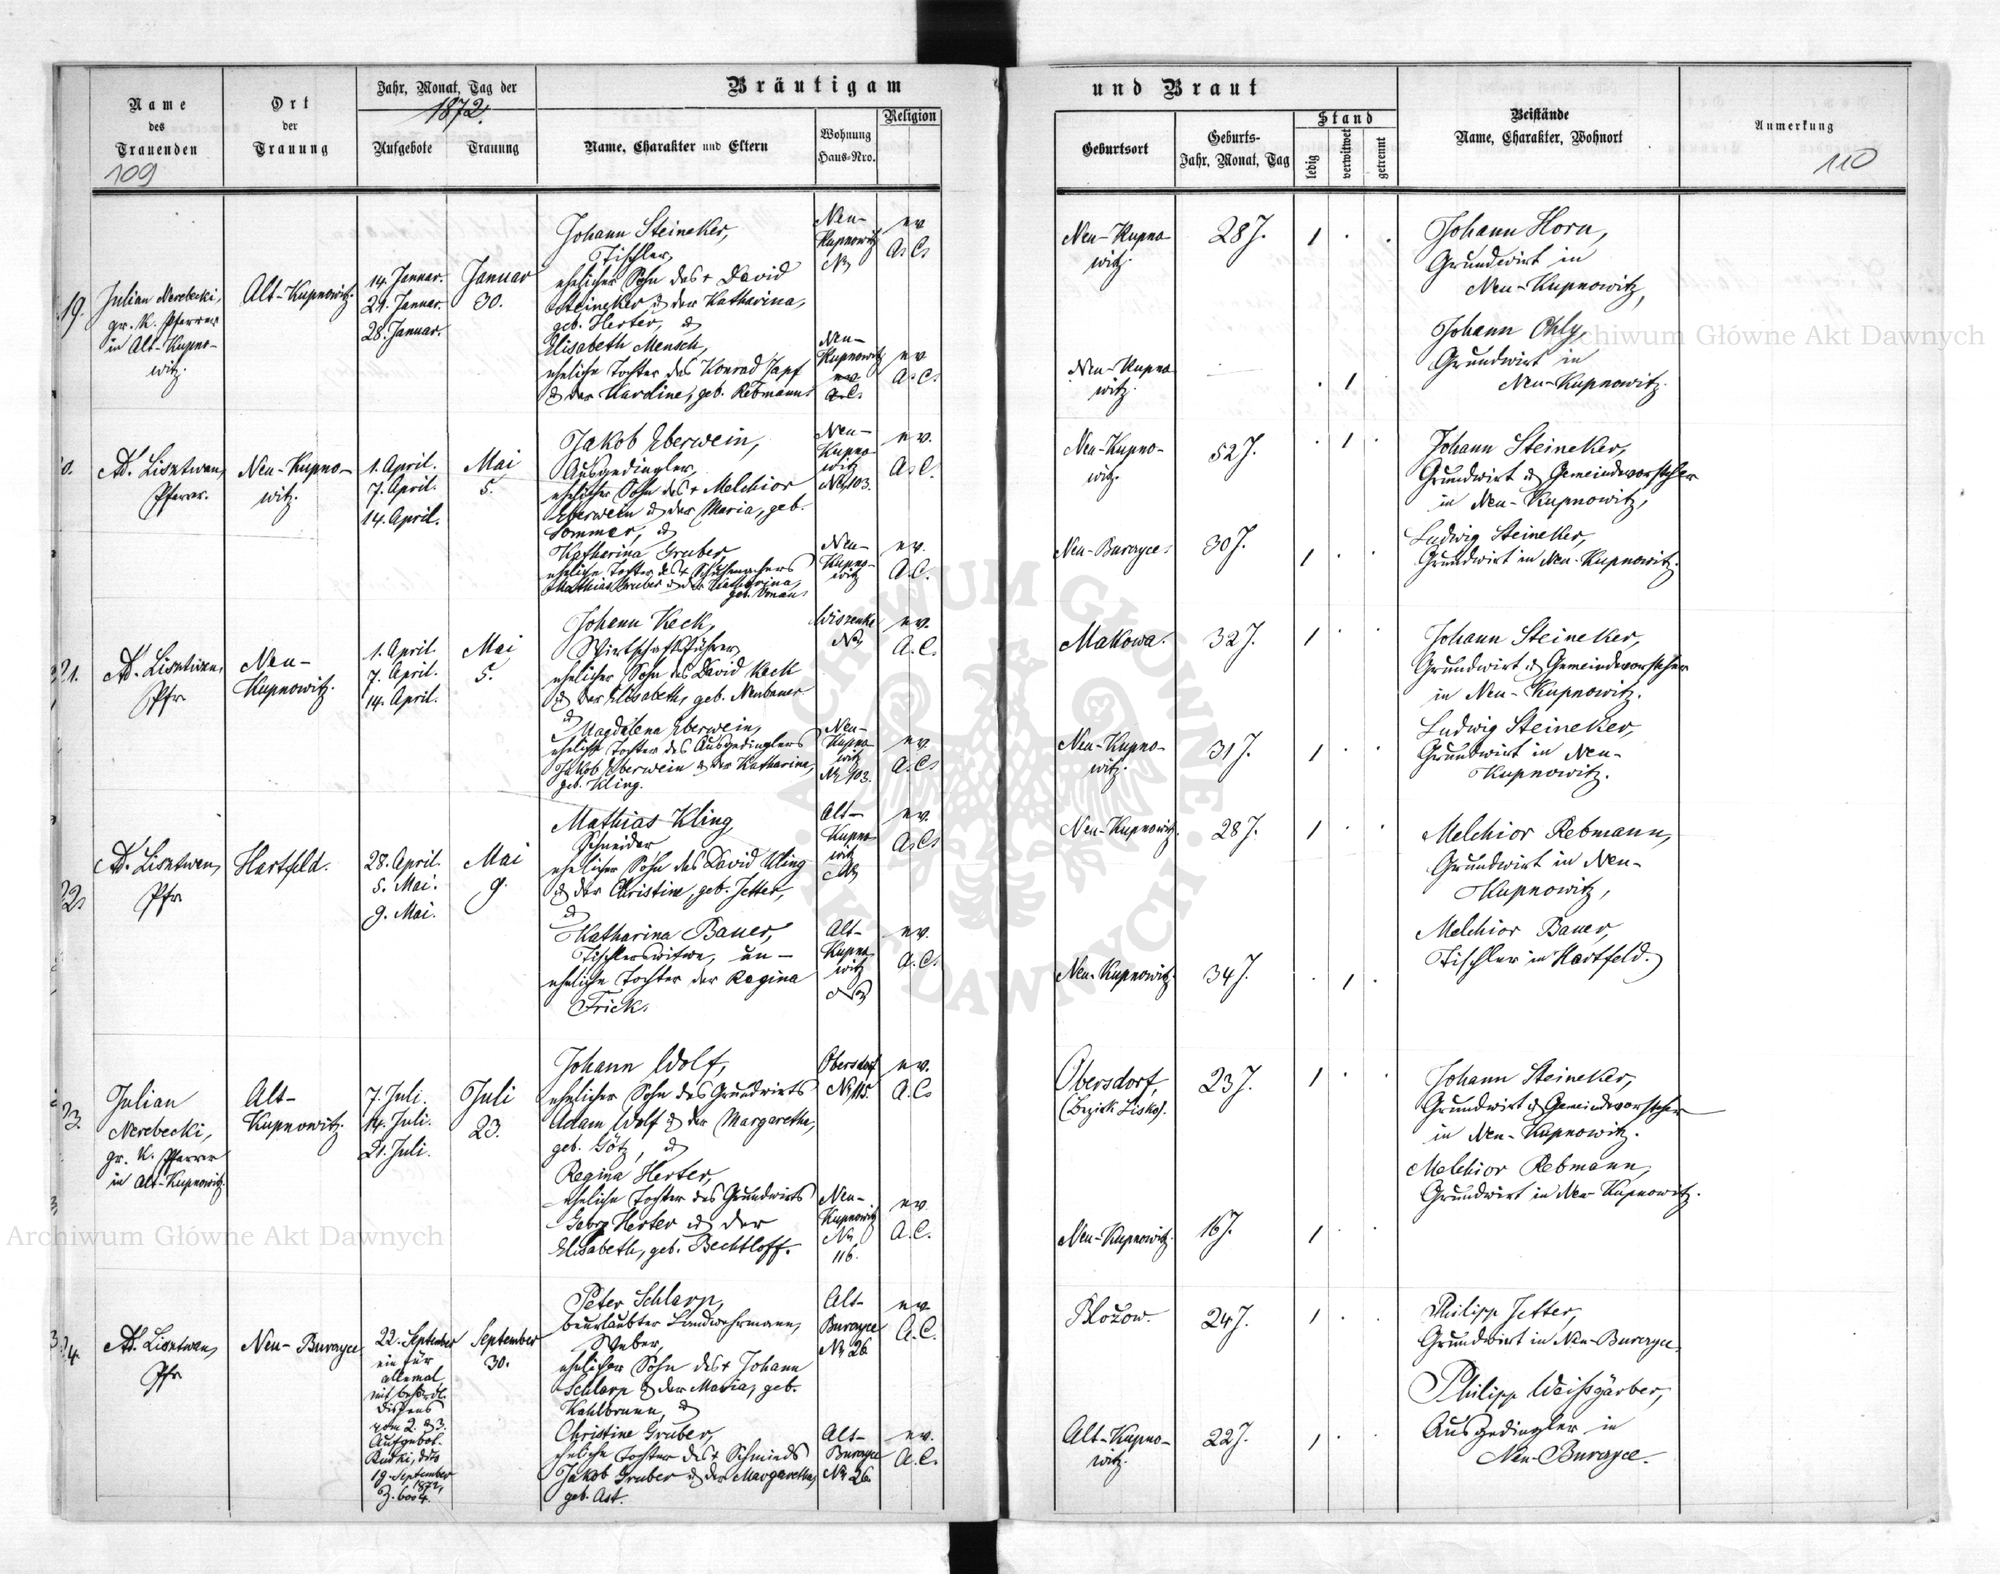 Bräutigam
und Braut
Name
des
Trauenden
109
Ort
der
Trauung
Jahr, Monat, Tag der
1872.
Aufgebote
Trauung
Name, Charakter und Eltern
Wohnung
Haus-Nro.
Religion
Geburtsort
Geburts-
Jahr, Monat, Tag
Stand
ledig
verwitwet
getrennt
Beistände
Name, Charakter, Wohnort
Anmerkung
110
19.
Julian Nerebecki,
gr. k. Pfarrer
in Alt-Kupno-
witz.
Alt-Kupnowitz.
14. Januar.
21. Januar.
28. Januar.
Januar
30.
Johann Steineker,
Tischler,
ehelicher Sohn des + David
Steineker & der Katharina,
geb. Herter, &
Elisabeth Mensch,
eheliche Tochter des Konrad Zapf
& der Karoline, geb. Rebmann.
Neu-
Kupnowitz
Nr
Neu-
Kupnowitz
ev.
A.C.
ev.
A.C.
ev.
A.C.
Neu-Kupno-
witz.
28 J.
1 . .
Neu-Kupno-
witz.
. 1 .
Johann Horn,
Grundwirt in
Neu-Kupnowitz,
Johann Ohly,
Grundwirt in
Neu-Kupnowitz.
0.
Ad. Lisztwan,
Pfarrer.
Neu-Kupno-
witz.
1. April.
7. April.
14. April.
Mai
5.
Jakob Eberwein,
Ausgedingler,
ehelicher Sohn des + Melchior
Eberwein & der Maria, geb.
Sommer, &
Katharina Gruber,
eheliche Tochter des + Schuhmachers
Mathias Gruber & der Katharina,
geb.
Neu-
Kupno-
witz
Nr 103.
Neu-
Kupno-
witz
ev.
A.C.
ev.
A.C.
Neu-Kupno-
witz.
52 J.
. 1 .
Neu-Burczyce.
30 J.
1 . .
Johann Steineker,
Grundwirt & Gemeindevorsteher
in Neu-Kupnowitz,
Ludwig Steineker,
Grundwirt in Neu-Kupnowitz.
21.
Ad. Lisztwan,
Pfr
Neu-
Kupnowitz.
1. April.
7. April.
14. April.
Mai
5.
Johann Keck,
Wirtschaftsführer,
ehelicher Sohn des David Keck
& der Elisabeth, geb. Neubauer
&
Magdalena Eberwein,
eheliche Tochter des Ausgedinglers
Jakob Eberwein & der Katharina,
geb. Kling.
Wiszenka
Nr
Neu-
Kupno-
witz
Nr 103.
ev.
A.C.
ev.
A.C.
Makowa.
32 J.
1 . .
Neu-Kupno-
witz.
31 J.
1 . .
Johann Steineker,
Grundwirt & Gemeindevorsteher
in Neu-Kupnowitz.
Ludwig Steineker,
Grundwirt in Neu-
Kupnowitz.
22.
Ad. Lisztwan,
Pfr
Hartfeld.
28. April.
5. Mai.
9. Mai.
Mai
9.
Mathias Kling
Schneider
ehelicher Sohn des David Kling
& der Christine, geb. Jetter,
&
Katharina Bauer,
Tischlerswitwe, un-
eheliche Tochter der Regina
Frick.
Alt-
Kupno-
witz
Nr
Alt-
Kupno-
witz
Nr
ev.
A.C.
ev.
A.C.
Neu-Kupnowitz.
28 J.
1 . .
Neu-Kupnowitz.
34 J.
. 1 .
Melchior Rebmann,
Grundwirt in Neu-
Kupnowitz,
Melchior Bauer,
Tischler in Hartfeld.
23.
Julian
Nerebecki,
gr. k. Pfarrer
in Alt-Kupnowitz.
Alt-
Kupnowitz.
7. Juli.
14. Juli.
21. Juli.
Juli
23.
Johann Wolf,
ehelicher Sohn des Grundwirts
Adam Wolf & der Margaretha,
geb. Götz, &
Regina Herter,
eheliche Tochter des Grundwirts
Georg Herter & der
Elisabeth, geb. Bechtloff.
Obersdorf
Nr 115.
Neu-
Kupnowitz
Nr
116.
ev.
A.C.
ev.
A.C.
Obersdorf,
(Bezirk Lisko).
23 J.
1 . .
Neu-Kupnowitz.
16 J.
1 . .
Johann Steineker,
Grundwirt & Gemeindevorsteher
in Neu-Kupnowitz.
Melchior Rebmann,
Grundwirt in Neu-Kupnowitz.
24.
Ad. Lisztwan,
Pfr
Neu-Burczyce
22. September
ein für
allemal
mit
Dispens
vom 2. & 3.
Aufgebot.
Rudki, ddto
19. September
1872,
Z. 6004.
September
30.
Peter Schlarp,
beurlaubter Landwehrmann,
Weber,
ehelicher Sohn des + Johann
Schlarp & der Maria, geb.
Kahlbrunn, &
Christine Gruber,
eheliche Tochter des + Schmieds
Jakob Gruber & der Margaretha,
geb. Ast.
Alt-
Burczyce
Nr 26
Alt-
Burczyce
Nr 26.
ev.
A.C.
ev.
A.C.
Błożow.
24 J.
1 . .
Alt-Kupno-
witz.
22 J.
1 . .
Philipp Jetter,
Grundwirt in Neu-Burczyce.
Philipp Weißgärber,
Ausgedingler in
Neu-Burczyce.
Archiwum Główne Akt Dawnych
Archiwum Główne Akt Dawnych
ARCHIWUM GŁÓWNE AKT DAWNYCH